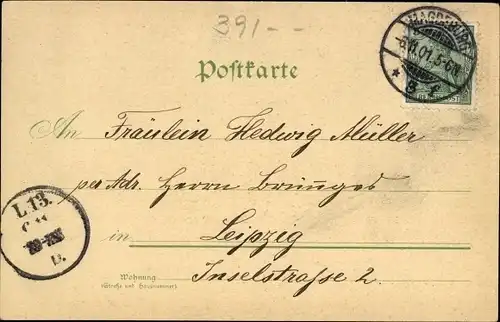 391--
MAGDEBURG
6.11.01.5-6N
* 3 f
Postkarte
An Fräulein Hedwig Müller
per Adr. Herrn
in Leipzig
Wohnung
(Straße und Hausnummer)
Inselstraße 2.
L.13.
b.